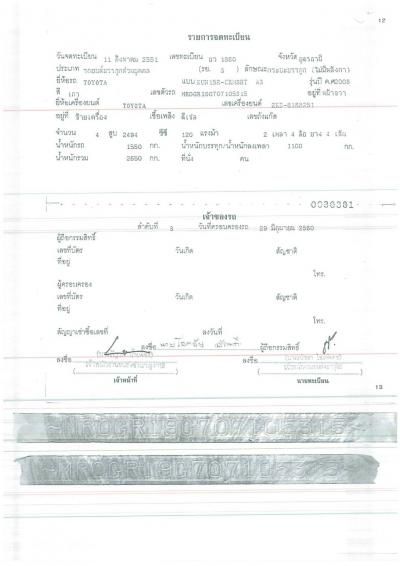 12
รายการจดทะเบียน
วันจดทะเบียน 11 สิงหาคม 2551 เลขทะเบียน 1560 จังหวัด อุดรธานี
ประเภท รถยนต์บรรทุกส่วนบุคคล (รย. 3 ) ลักษณะ กระบะบรรทุก (ไม่มีหลังคา)
ยี่ห้อรถ TOYOTA แบบ รุ่นปี ค.ศ 2008
สี เทา เลขตัวรถ MR0GR19G707105515 อยู่ที่ หน้าขวา
ยี่ห้อเครื่องยนต์ TOYOTA เลขเครื่องยนต์
อยู่ที่ ซ้ายเครื่อง เชื้อเพลิง ดีเซล เลขถังแก๊ส
จำนวน 4 สูบ 2494 ซีซี 120 แรงม้า 2 เพลา 4 ล้อ ยาง 4 เส้น
น้ำหนักรถ 1550 กก. น้ำหนักบรรทุก/น้ำหนักลงเพลา 1100 กก.
น้ำหนักรวม 2650 กก. ที่นั่ง คน
เจ้าของรถ
ลำดับที่ 3 วันที่ครอบครองรถ 29 มิถุนายน 2560
ผู้ถือกรรมสิทธิ์
เลขที่บัตร วันเกิด สัญชาติ
ที่อยู่
โทร.
ผู้ครอบครอง
เลขที่บัตร วันเกิด สัญชาติ
ที่อยู่
โทร.
สัญญาเช่าซื้อเลขที่ ลงวันที่
ลงชื่อ ผู้ถือกรรมสิทธิ์
ลงชื่อ ลงชื่อ
( ) ( )
เจ้าหน้าที่ นายทะเบียน
13